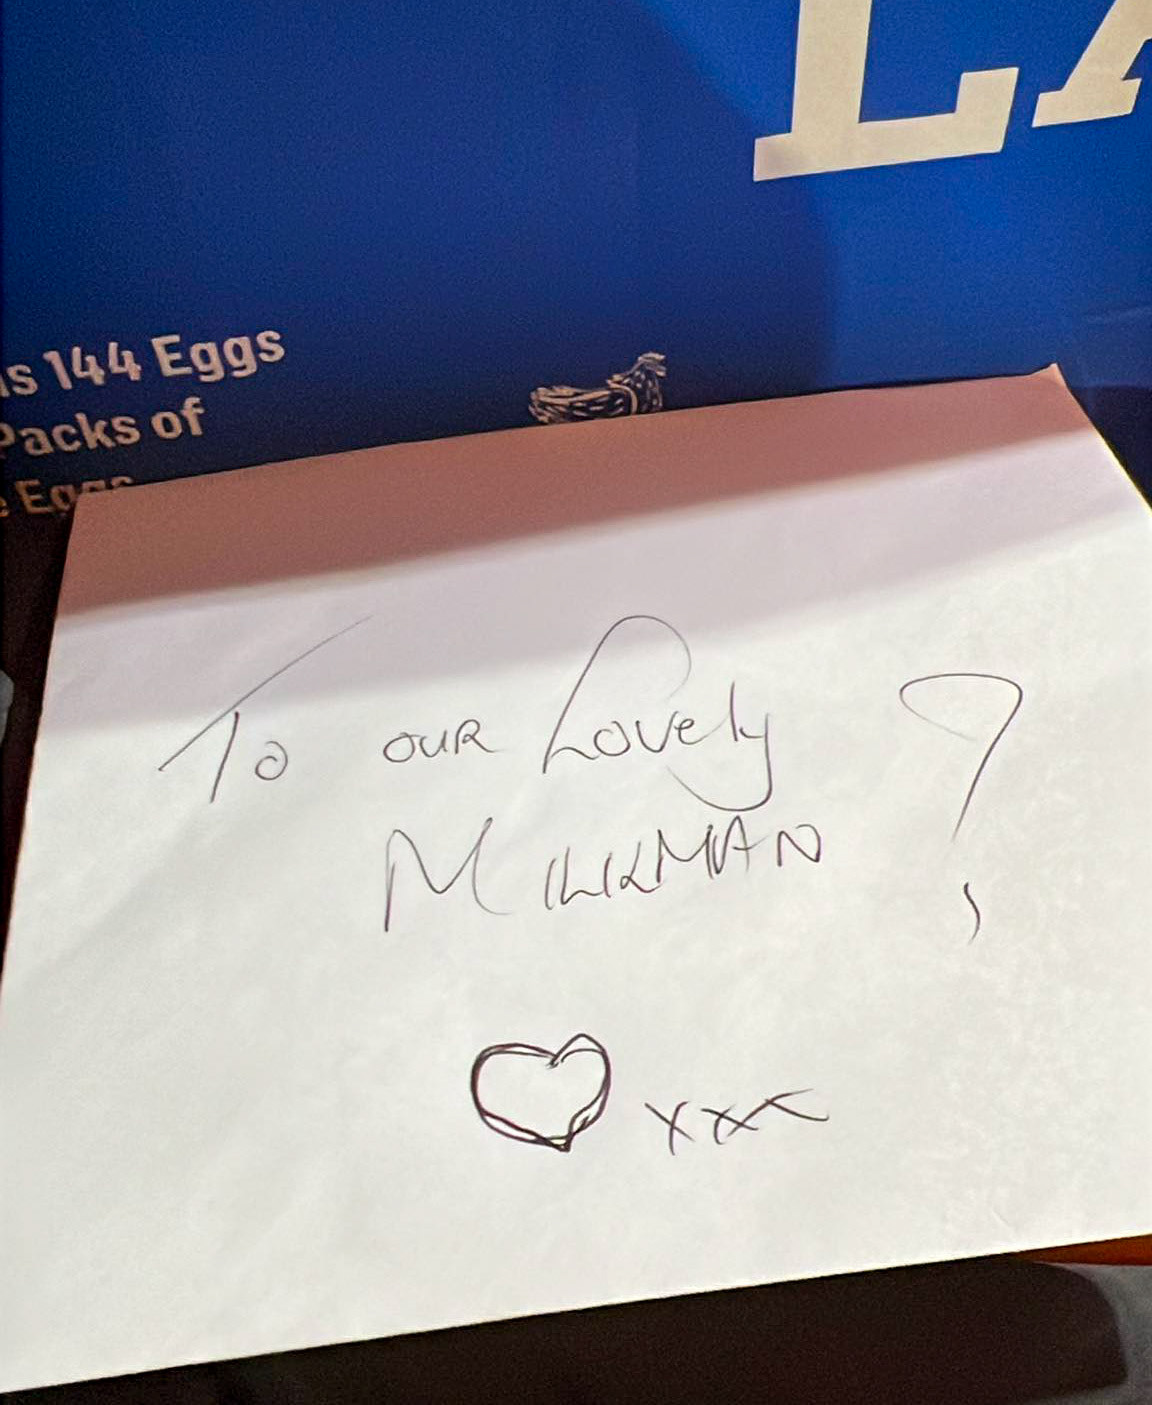 LA
s 144 Eggs
Packs of
Eggs
To OUR Lovely ?
MILKMAN
xxx